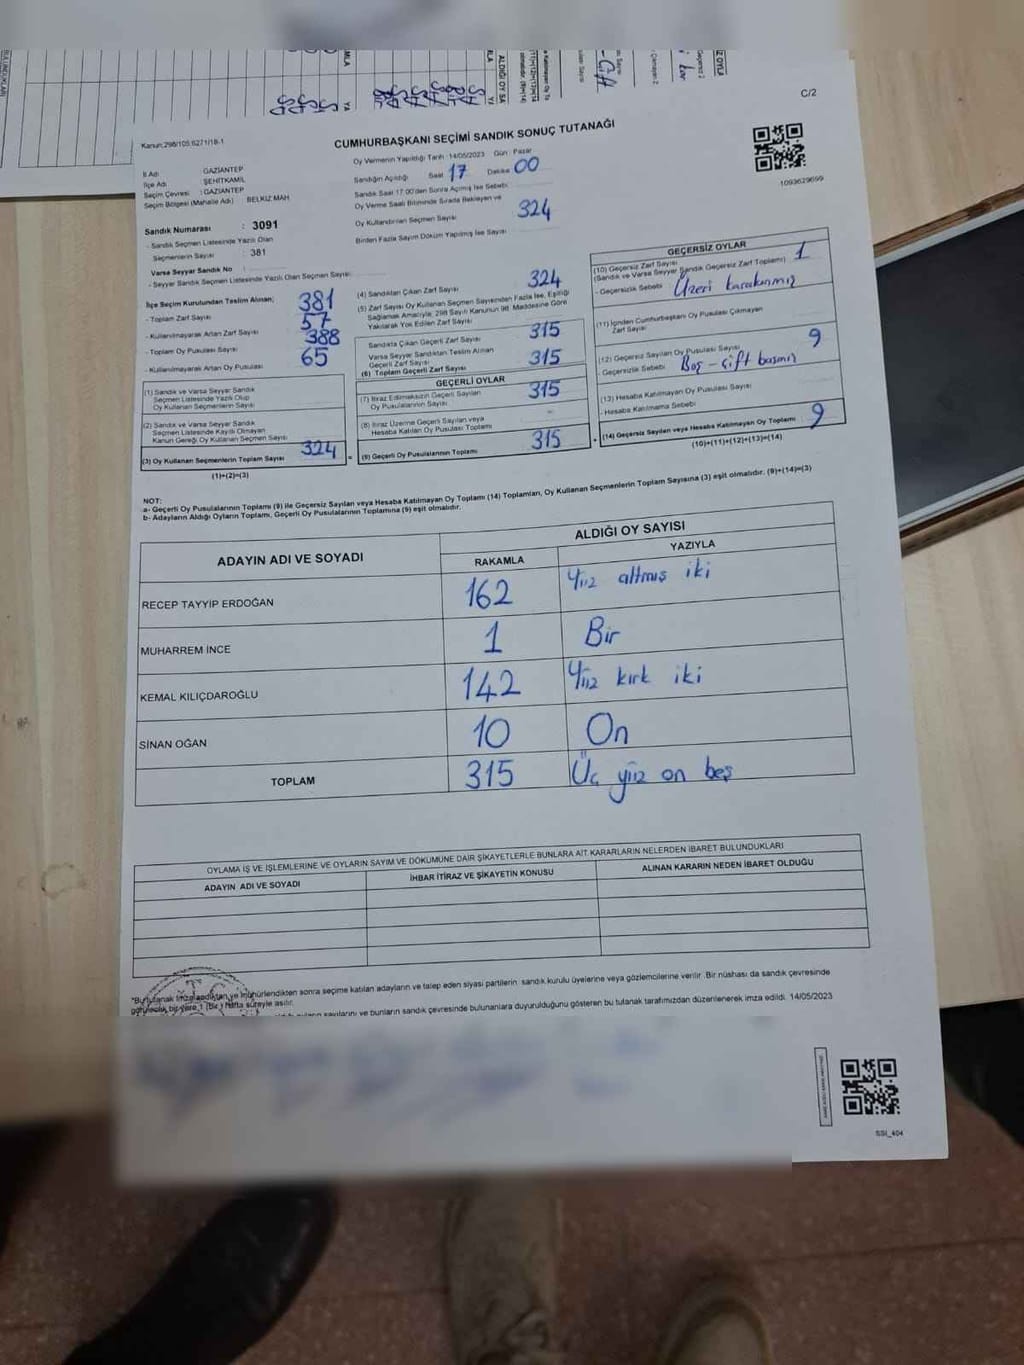 C/2
Kanun:298/105,6271/18-1
CUMHURBAŞKANI SEÇİMİ SANDIK SONUÇ TUTANAĞI
Oy Vermenin Yapıldığı Tarih :14/05/2023 Gün : Pazar
Sandığın Açıldığı Saat 17 Dakika 00
Sandık Saat 17:00'den Sonra Açılmış İse Sebebi:
Oy Verme Saati Bitiminde Sırada Bekleyen ve
Oy Kullandırılan Seçmen Sayısı 324
Birden Fazla Sayım Döküm Yapılmış İse Sayısı
1093629699
İl Adı : GAZİANTEP
İlçe Adı : ŞEHİTKAMİL
Seçim Çevresi : GAZİANTEP
Seçim Bölgesi (Mahalle Adı) BELKIZ MAH.
Sandık Numarası : 3091
- Sandık Seçmen Listesinde Yazılı Olan
Seçmenlerin Sayısı : 381
Varsa Seyyar Sandık No :
- Seyyar Sandık Seçmen Listesinde Yazılı Olan Seçmen Sayısı:
İlçe Seçim Kurulundan Teslim Alınan;
- Toplam Zarf Sayısı 381
- Kullanılmayarak Artan Zarf Sayısı 57
- Toplam Oy Pusulası Sayısı 388
- Kullanılmayarak Artan Oy Pusulası 65
(1) Sandık ve Varsa Seyyar Sandık
Seçmen Listesinde Yazılı Olup
Oy Kullanan Seçmenlerin Sayısı
(2) Sandık ve Varsa Seyyar Sandık
Seçmen Listesinde Kayıtlı Olmayan
Kanun Gereği Oy Kullanan Seçmen Sayısı
(3) Oy Kullanan Seçmenlerin Toplam Sayısı 324
(1)+(2)=(3)
(4) Sandıktan Çıkan Zarf Sayısı 324
(5) Zarf Sayısı Oy Kullanan Seçmen Sayısından Fazla İse, Eşitliği
Sağlamak Amacıyla; 298 Sayılı Kanunun 98. Maddesine Göre
Yakılarak Yok Edilen Zarf Sayısı
Sandıkta Çıkan Geçerli Zarf Sayısı 315
Varsa Seyyar Sandıktan Teslim Alınan
Geçerli Zarf Sayısı
(6) Toplam Geçerli Zarf Sayısı 315
GEÇERLİ OYLAR
(7) İtiraz Edilmeksizin Geçerli Sayılan
Oy Pusulalarının Sayısı 315
(8) İtiraz Üzerine Geçerli Sayılan veya
Hesaba Katılan Oy Pusulası Toplamı -
(9) Geçerli Oy Pusulalarının Toplamı 315
GEÇERSİZ OYLAR
(10) Geçersiz Zarf Sayısı
(Sandık ve Varsa Seyyar Sandık Geçersiz Zarf Toplamı) 1
- Geçersizlik Sebebi Üzeri karalanmış
(11) İçinden Cumhurbaşkanı Oy Pusulası Çıkmayan
Zarf Sayısı
(12) Geçersiz Sayılan Oy Pusulası Sayısı 9
- Geçersizlik Sebebi Boş - çift basmış
(13) Hesaba Katılmayan Oy Pusulası Sayısı
- Hesaba Katılmama Sebebi
(14) Geçersiz Sayılan veya Hesaba Katılmayan Oy Toplamı 9
(10)+(11)+(12)+(13)=(14)
NOT:
a- Geçerli Oy Pusulalarının Toplamı (9) ile Geçersiz Sayılan veya Hesaba Katılmayan Oy Toplamı (14) Toplamları, Oy Kullanan Seçmenlerin Toplam Sayısına (3) eşit olmalıdır. (9)+(14)=(3)
b- Adayların Aldığı Oyların Toplamı, Geçerli Oy Pusulalarının Toplamına (9) eşit olmalıdır.
ADAYIN ADI VE SOYADI
ALDIĞI OY SAYISI
RAKAMLA YAZIYLA
RECEP TAYYİP ERDOĞAN 162 Yüz altmış iki
MUHARREM İNCE 1 Bir
KEMAL KILIÇDAROĞLU 142 Yüz kırk iki
SİNAN OĞAN 10 On
TOPLAM 315 Üç yüz on beş
OYLAMA İŞ VE İŞLEMLERİNE VE OYLARIN SAYIM VE DÖKÜMÜNE DAİR ŞİKAYETLERLE BUNLARA AİT KARARLARIN NELERDEN İBARET BULUNDUKLARI
ADAYIN ADI VE SOYADI İHBAR İTİRAZ VE ŞİKAYETİN KONUSU ALINAN KARARIN NEDEN İBARET OLDUĞU
*Bu tutanak imzalandıktan ve mühürlendikten sonra seçime katılan adayların ve talep eden siyasi partilerin sandık kurulu üyelerine veya gözlemcilerine verilir. Bir nüshası da sandık çevresinde
görülecek bir yere 1 (Bir) hafta süreyle asılır.
sayılarını ve bunların sandık çevresinde bulunanlara duyurulduğunu gösteren bu tutanak tarafımızdan düzenlenerek imza edildi. 14/05/2023
SSI_404